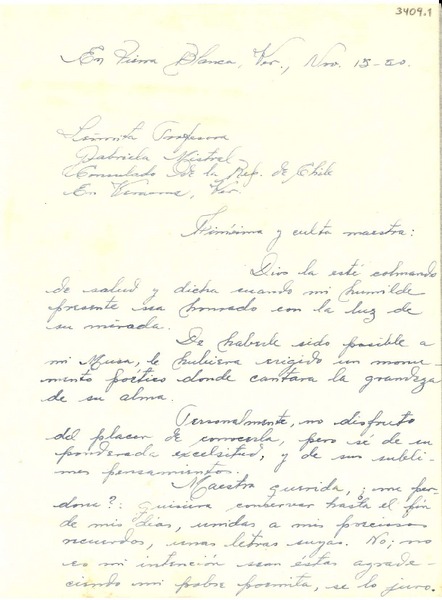 3409.1
En Tierra Blanca, Ver., Nov. 15-50.
Señorita Profesora
Gabriela Mistral
Consulado de la Rep. de Chile
En Veracruz, Ver.
Finísima y culta maestra:
Dios la esté colmando
de salud y dicha cuando mi humilde
presente sea honrado con la luz de
su mirada.
De haberle sido posible a
mi Musa, le hubiera erigido un monu-
mento poético donde cantara la grandeza
de su alma.
Personalmente, no disfruto
del placer de conocerla, pero sé de su
ponderada excelsitud, y de sus subli-
mes pensamientos.
Maestra querida, ¿me per-
dona?: quisiera conservar hasta el fin
de mis días, unidas a mis preciosos
recuerdos, unas letras suyas. No; no
es mi intención sean éstas agrade-
ciendo mi pobre poemita, se lo juro.